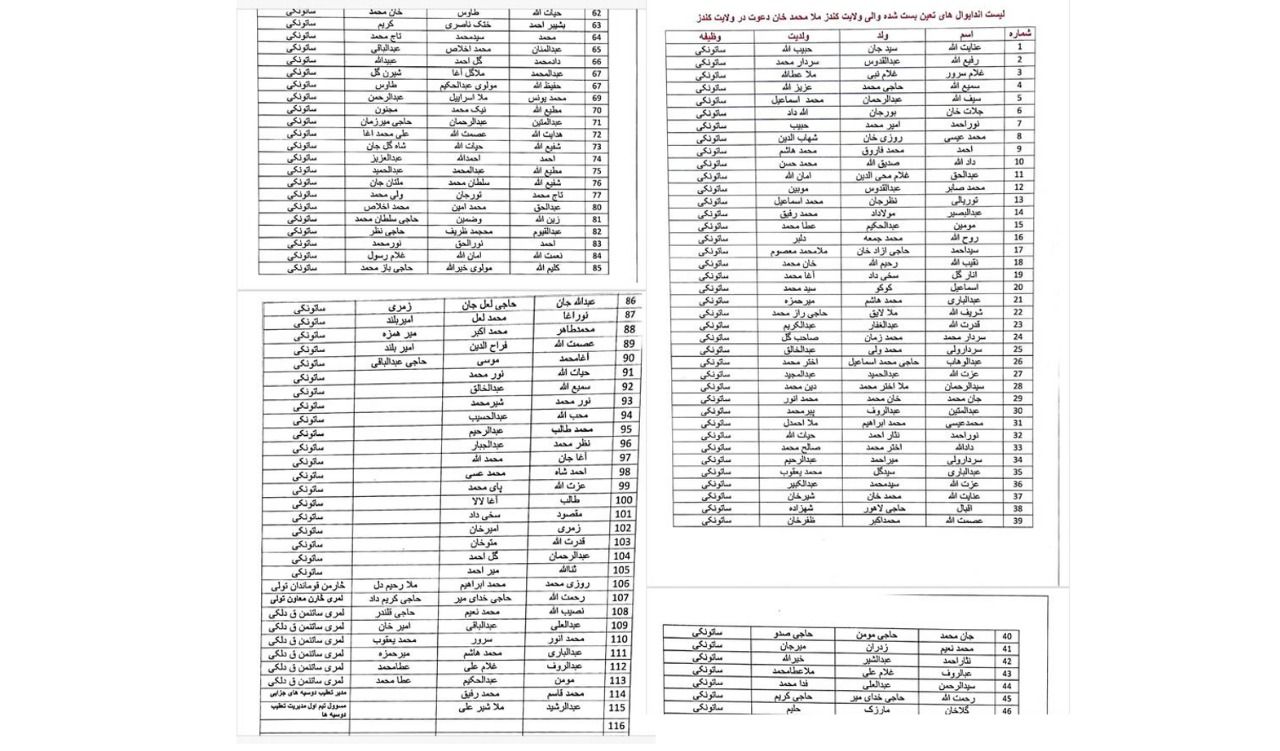 لیست اندیوال های تعین بست شده والی ولایت کندز ملا محمد خان دعوت در ولایت کندز
شماره اسم ولد ولدیت وظیفه
1 عنایت الله سید جان حبیب الله ساتونکی
2 رفیع الله عبدالقدوس سردار محمد ساتونکی
3 غلام سرور غلام نبی ملا عطالله ساتونکی
4 سمیع الله حاجی محمد عزیز الله ساتونکی
5 سیف الله عبدالرحمان محمد اسماعیل ساتونکی
6 جلات خان بورجان الله داد ساتونکی
7 نوراحمد امیر محمد حبیب ساتونکی
8 محمد عیسی روزی خان شهاب الدین ساتونکی
9 احمد محمد فاروق محمد هاشم ساتونکی
10 داد الله صدیق الله محمد حسن ساتونکی
11 عبدالحق غلام محی الدین امان الله ساتونکی
12 محمد صابر عبدالقدوس موبین ساتونکی
13 توریالی نظرجان محمد اسماعیل ساتونکی
14 عبدالبصیر مولاداد محمد رفیق ساتونکی
15 مومین عبدالحکیم عطا محمد ساتونکی
16 روح الله محمد جمعه دلبر ساتونکی
17 سیداحمد حاجی ازاد خان ملامحمد معصوم ساتونکی
18 نقیب الله رحیم الله خان محمد ساتونکی
19 انار گل سخی داد آغا محمد ساتونکی
20 اسماعیل کوکو سید محمد ساتونکی
21 عبدالباری محمد هاشم میرحمزه ساتونکی
22 شریف الله ملا لایق حاجی راز محمد ساتونکی
23 قدرت الله عبدالغفار عبدالکریم ساتونکی
24 سردار محمد محمد زمان صاحب گل ساتونکی
25 سردارولی محمد ولی عبدالخالق ساتونکی
26 عبدالوهاب حاجی محمد اسماعیل اختر محمد ساتونکی
27 عزت الله عبدالحمید عبدالمجید ساتونکی
28 سیدالرحمان ملا اختر محمد دین محمد ساتونکی
29 جان محمد خان محمد محمد انور ساتونکی
30 عبدالمتین عبدالروف پیرمحمد ساتونکی
31 محمدعیسی محمد ابراهیم ملا احمدل ساتونکی
32 نوراحمد نثار احمد حیات الله ساتونکی
33 دادالله اختر محمد صالح محمد ساتونکی
34 سردارولی میراحمد عبدالرحیم ساتونکی
35 عبدالباری سیدگل محمد یعقوب ساتونکی
36 عزت الله سیدمحمد عبدالکبیر ساتونکی
37 عنایت الله محمد خان شیرخان ساتونکی
38 اقبال حاجی لاهور شهزاده ساتونکی
39 عصمت الله محمداکبر ظفرخان ساتونکی
40 جان محمد حاجی مومن حاجی صدو ساتونکی
41 محمد نعیم زدران میرجان ساتونکی
42 نثاراحمد عبدالشیر خیرالله ساتونکی
43 عبالروف غلام علی ملاعطامحمد ساتونکی
44 سیدالرحمن عبدالعلی فدا محمد ساتونکی
45 رحمت الله حاجی خدای میر حاجی کریم ساتونکی
46 گلاخان مارزک حلیم ساتونکی
62 حیات الله طاوس خان محمد ساتونکی
63 بشیر احمد ختک ناصری کریم ساتونکی
64 محمد سیدمحمد تاج محمد ساتونکی
65 عبدالمنان محمد اخلاص عبدالباقی ساتونکی
66 دادمحمد گل احمد عبیدالله ساتونکی
67 عبدالمحمد ملاگل آغا شیرن گل ساتونکی
67 حفیظ الله مولوی عبدالحکیم طاوس ساتونکی
69 محمد یونس ملا اسراییل عبدالرحمن ساتونکی
70 مطیع الله نیک محمد مجنون ساتونکی
71 عبدالمتین عبدالرحمان حاجی میرزمان ساتونکی
72 هدایت الله عصمت الله علی محمد اغا ساتونکی
73 شفیع الله حیات الله شاه گل جان ساتونکی
74 احمد احمدالله عبدالعزیز ساتونکی
75 مطیع الله عبدالمحمد عبدالحمید ساتونکی
76 شفیع الله سلطان محمد ملتان جان ساتونکی
77 تاج محمد تورجان ولی محمد ساتونکی
80 عبدالحق محمد امین محمد اخلاص ساتونکی
81 زین الله وضمین حاجی سلطان محمد ساتونکی
82 عبدالقیوم محجمد ظریف حاجی نظر ساتونکی
83 احمد نورالحق نورمحمد ساتونکی
84 نعمت الله امان الله غلام رسول ساتونکی
85 کلیم الله مولوی خیرالله حاجی باز محمد ساتونکی
86 عبدالله جان حاجی لعل جان زمری ساتونکی
87 نوراغا محمد لعل امیربلند ساتونکی
88 محمدطاهر محمد اکبر میر همزه ساتونکی
89 عصمت الله فراح الدین امیر بلند ساتونکی
90 آغامحمد موسی حاجی عبدالباقی ساتونکی
91 حیات الله نور محمد ساتونکی
92 سمیع الله عبدالخالق ساتونکی
93 نور محمد شیرمحمد ساتونکی
94 محب الله عبدالحسیب ساتونکی
95 محمد طالب عبدالرحیم ساتونکی
96 نظر محمد عبدالجبار ساتونکی
97 آغا جان محمد الله ساتونکی
98 احمد شاه محمد عسی ساتونکی
99 عزت الله پای محمد ساتونکی
100 طالب آغا لالا ساتونکی
101 مقصود سخی داد ساتونکی
102 زمری امیرخان ساتونکی
103 قدرت الله متوخان ساتونکی
104 عبدالرحمان گل احمد ساتونکی
105 ثناالله میر احمد ساتونکی
106 روزی محمد محمد ابراهیم ملا رحیم دل څارمن قوماندان تولی
107 رحمت الله حاجی خدای میر حاجی کریم داد لمری څارن معاون تولی
108 نصیب الله محمد نعیم حاجی قلندر لمری ساتنمن ق دلکی
109 عبدالعلی عبدالباقی امیر خان لمری ساتنمن ق دلکی
110 محمد انور سرور محمد یعقوب لمری ساتنمن ق دلکی
111 عبدالباری محمد هاشم میرحمزه لمری ساتنمن ق دلکی
112 عبدالروف غلام علی عطامحمد لمری ساتنمن ق دلکی
113 مومن عبدالحکیم عطا محمد لمری ساتنمن ق دلکی
114 محمد قاسم محمد رفیق مدیر تعقیب دوسیه های جزایی
115 عبدالرشید ملا شیر علی مسوول تیم اول مدیریت تعقیب
دوسیه ها
116